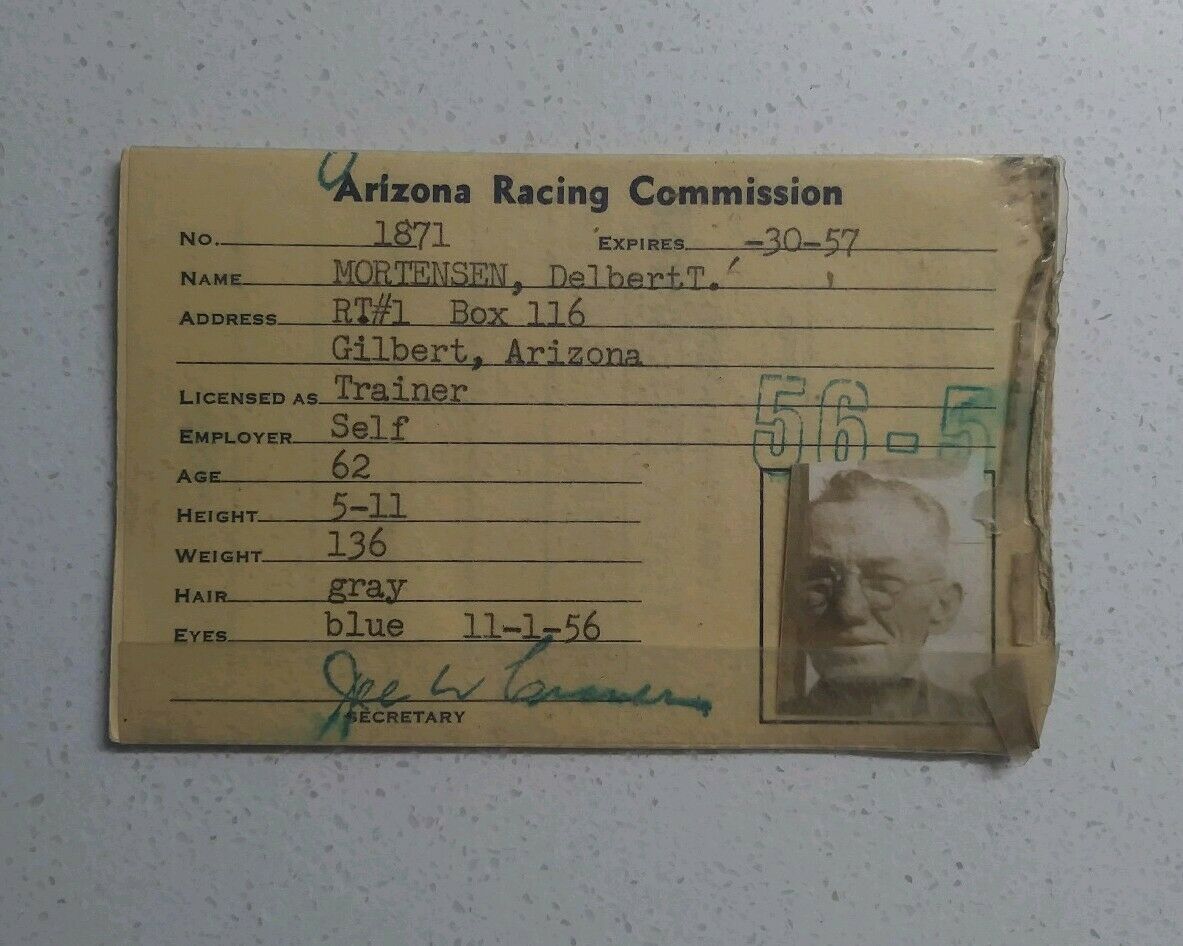 Arizona Racing Commission
No. 1871 EXPIRES -30-57
NAME MORTENSEN, DelbertT.
ADDRESS RT#1 Box 116
Gilbert, Arizona
LICENSED AS Trainer
56-5
EMPLOYER Self
AGE 62
HEIGHT 5-11
WEIGHT 136
HAIR gray
EYES blue 11-1-56
Joe W
SECRETARY